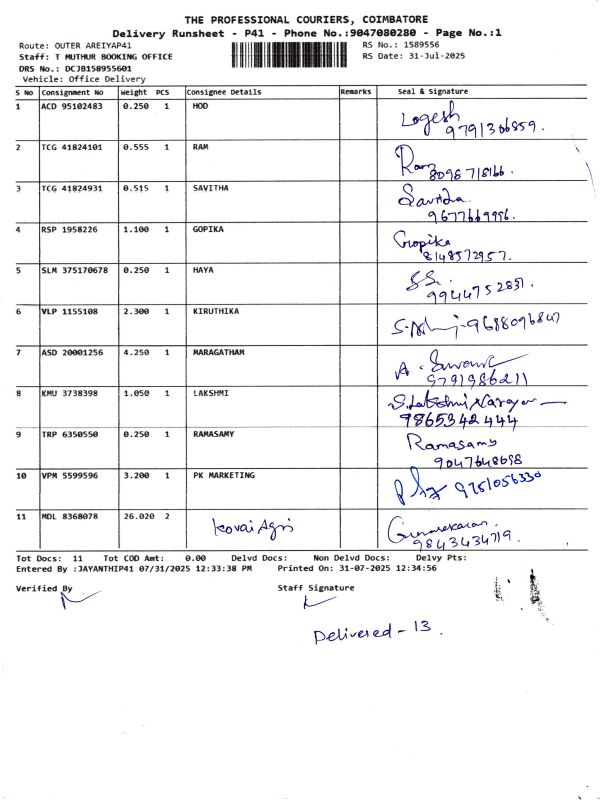 THE PROFESSIONAL COURIERS, COIMBATORE
Delivery Runsheet - P41 - Phone No.:9047080280 - Page No.:1
Route: OUTER AREIYAP41 RS No.: 1589556
Staff: T MUTHUR BOOKING OFFICE RS Date: 31-Jul-2025
DRS No.: DCJB158955601
Vehicle: Office Delivery
S No Consignment No Weight PCS Consignee Details Remarks Seal & Signature
1 ACD 95102483 0.250 1 HOD Logesh
9791306859.
2 TCG 41824101 0.555 1 RAM Ram
8098718166.
3 TCG 41824931 0.515 1 SAVITHA Savitha
9677669996.
4 RSP 1958226 1.100 1 GOPIKA Gopika
8148572957.
5 SLM 375170678 0.250 1 HAYA
9944752831.
6 VLP 1155108 2.300 1 KIRUTHIKA -9688096847
7 ASD 20001256 4.250 1 MARAGATHAM
9791986211
8 KMU 3738398 1.050 1 LAKSHMI S.Lakshmi Narayan
9865342444
9 TRP 6350550 0.250 1 RAMASAMY Ramasamy
9047648698
10 VPM 5599596 3.200 1 PK MARKETING 9751056330
11 MDL 8368078 26.020 2 Kovai Agri Gunasekaran.
9843434719.
Tot Docs: 11 Tot COD Amt: 0.00 Delvd Docs: Non Delvd Docs: Delvy Pts:
Entered By :JAYANTHIP41 07/31/2025 12:33:38 PM Printed On: 31-07-2025 12:34:56
Verified By Staff Signature
Delivered - 13.